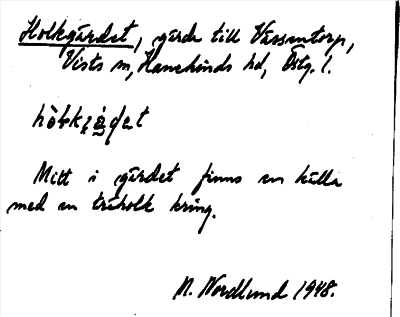 Holkgärdet, gärde till Vässentorp,
Vists sn, Hanekinds hd, Östg. l.
Mitt i gärdet finns en källa
med en träholk kring.
N. Nordlund 1948.